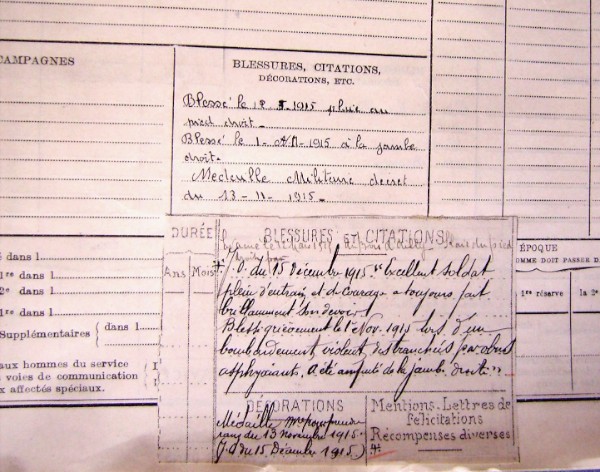 CAMPAGNES
BLESSURES, CITATIONS,
DÉCORATIONS, ETC.
Blessé le 1915 plaie au
pied droit.
Blessé le 1- 1915 à la jambe
droite.
Médaille Militaire décret
du 13-11-1915.
DURÉE
BLESSURES et CITATIONS
Ans Mois
J.O. du 15 Décembre 1915. "Excellent soldat
plein d'entrain et de courage a toujours fait
brillamment son devoir.
Blessé grièvement le 1er Nov. 1915 lors d'un
bombardement violent des tranchées par obus
asphyxiants. A été amputé de la jambe droite".
DÉCORATIONS
Médaille
rang du 13 Novembre 1915.
(J.O du 15 Décembre 1915)
Mentions. Lettres de
félicitations
Récompenses diverses
ÉPOQUE
OMME DOIT PASSER D
1re réserve
la 2e
é dans l
1re dans l
2e dans l
1re dans l
Supplémentaires { dans l
aux hommes du service
voies de communication
x affectés spéciaux.